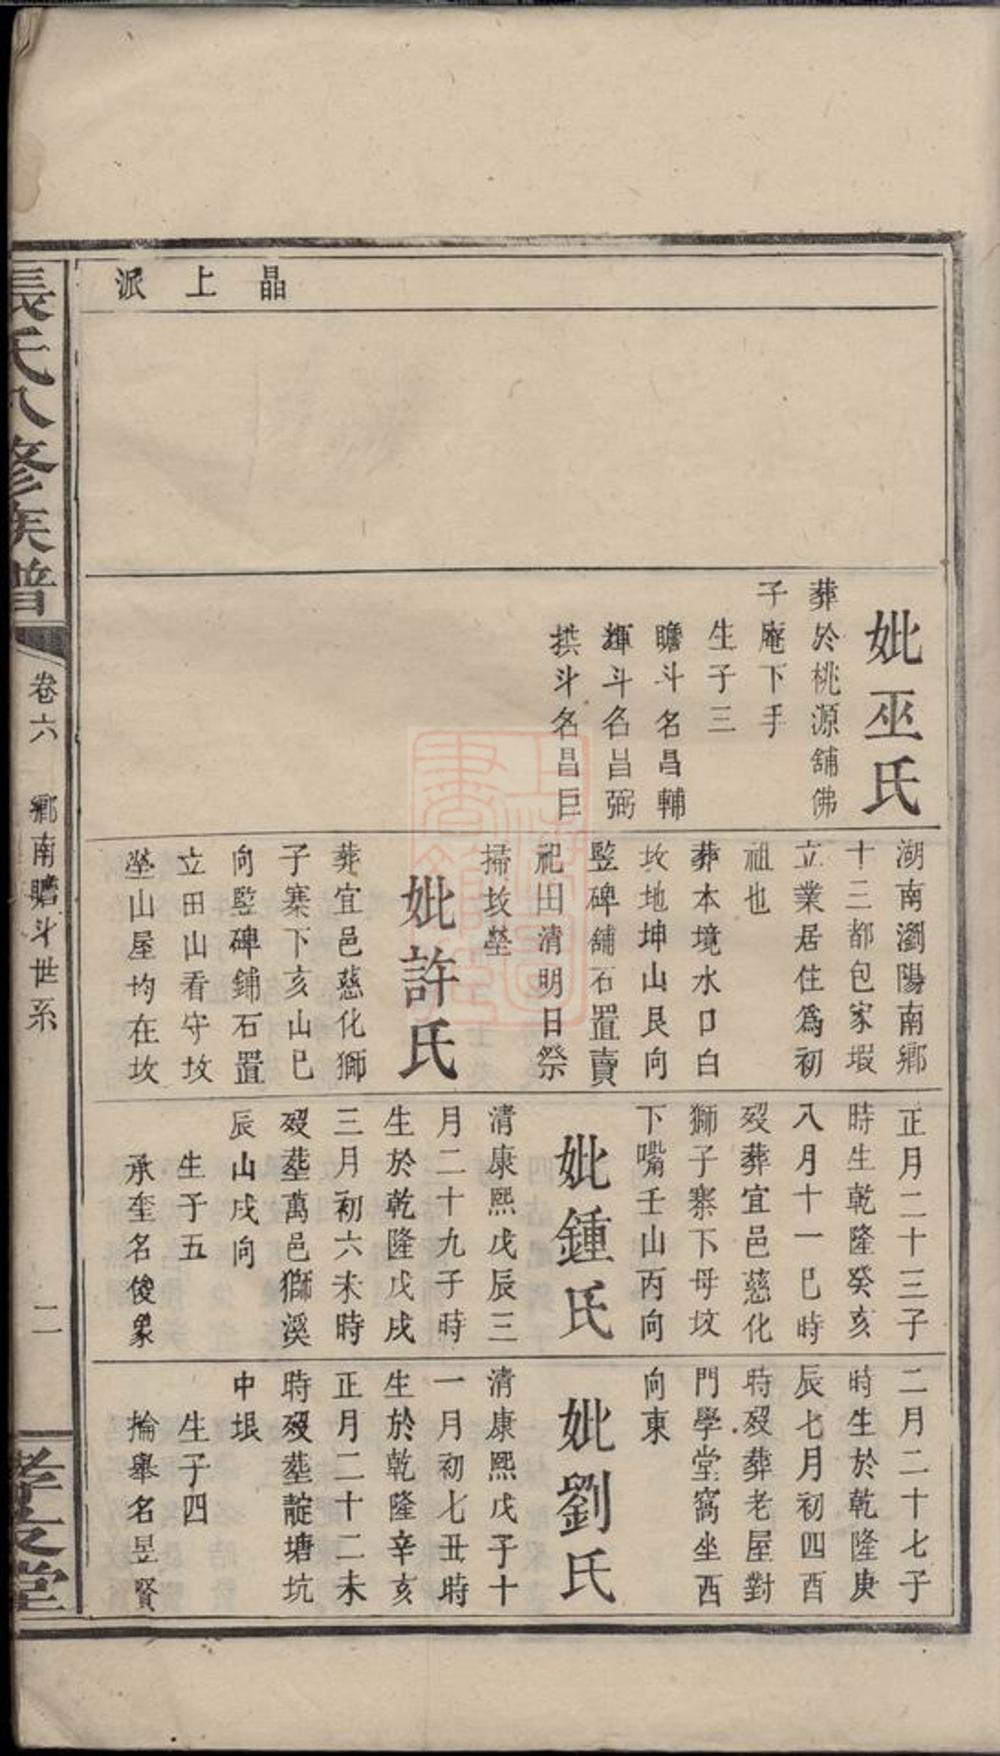 晶上派
妣巫氏
葬於桃源舖佛
子庵下手
生子三
瞻斗名昌輔
輝斗名昌弼
拱斗名昌巨
湖南瀏陽南鄉
十三都包家塅
立業居住爲初
祖也
葬本境水口白
坟地坤山艮向
竪碑舖石置賣
祀田清明日祭
掃坟塋
妣許氏
葬宜邑慈化獅
子寨下亥山巳
向竪碑鋪石置
立田山看守坟
塋山屋均在坟
正月二十三子
時生乾隆癸亥
八月十一巳時
歿葬宜邑慈化
獅子寨下母坟
下嘴壬山丙向
妣鍾氏
清康熙戊辰三
月二十九子時
生於乾隆戊戌
三月初六未時
歿塟萬邑獅溪
辰山戌向
生子五
承奎名俊象
二月二十七子
時生於乾隆庚
辰七月初四酉
時歿葬老屋對
門學堂窩坐西
向東
妣劉氏
清康熙戊子十
一月初七丑時
生於乾隆辛亥
正月二十二未
時歿塟靛塘坑
中垠
生子四
掄舉名昱賢
張氏八修族譜
卷六
鄉南瞻斗世系
二
孝友堂